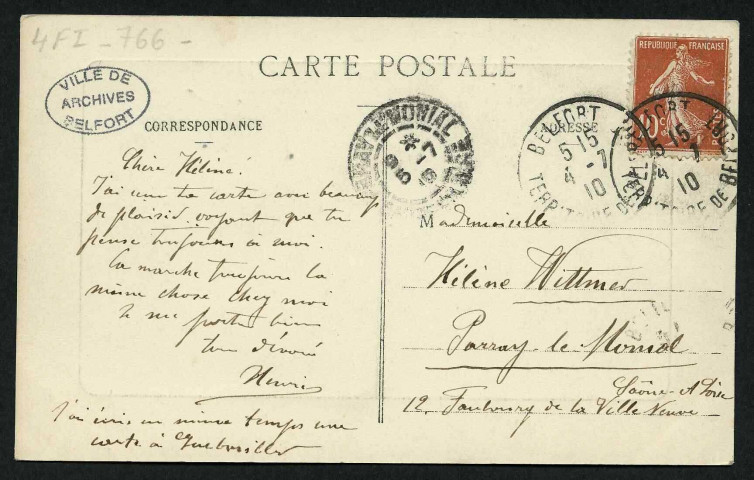 4FI-766-
CARTE POSTALE
VILLE DE
ARCHIVES
BELFORT
CORRESPONDANCE
ADRESSE
REPUBLIQUE FRANÇAISE
10c
BELFORT
5 15
4 - 7
10
TERRITOIRE DE BELFORT
BELFORT
5 15
4 7
10
TERRITOIRE DE BELFORT
PARAY-LE-MONIAL
Chère Hélène.
J'ai reçu ta carte avec beaucoup
de plaisir voyant que tu
pense toujours à moi.
Ca marche toujours la
même chose chez moi
Je me porte bien
ton dévoué
Henri
J'ai écris en même temps une
carte à Guebwiller
Mademoiselle
Hélène Wittmer
Parray le Monial
Saône-et-Loire
12. Faubourg de la Ville Neuve